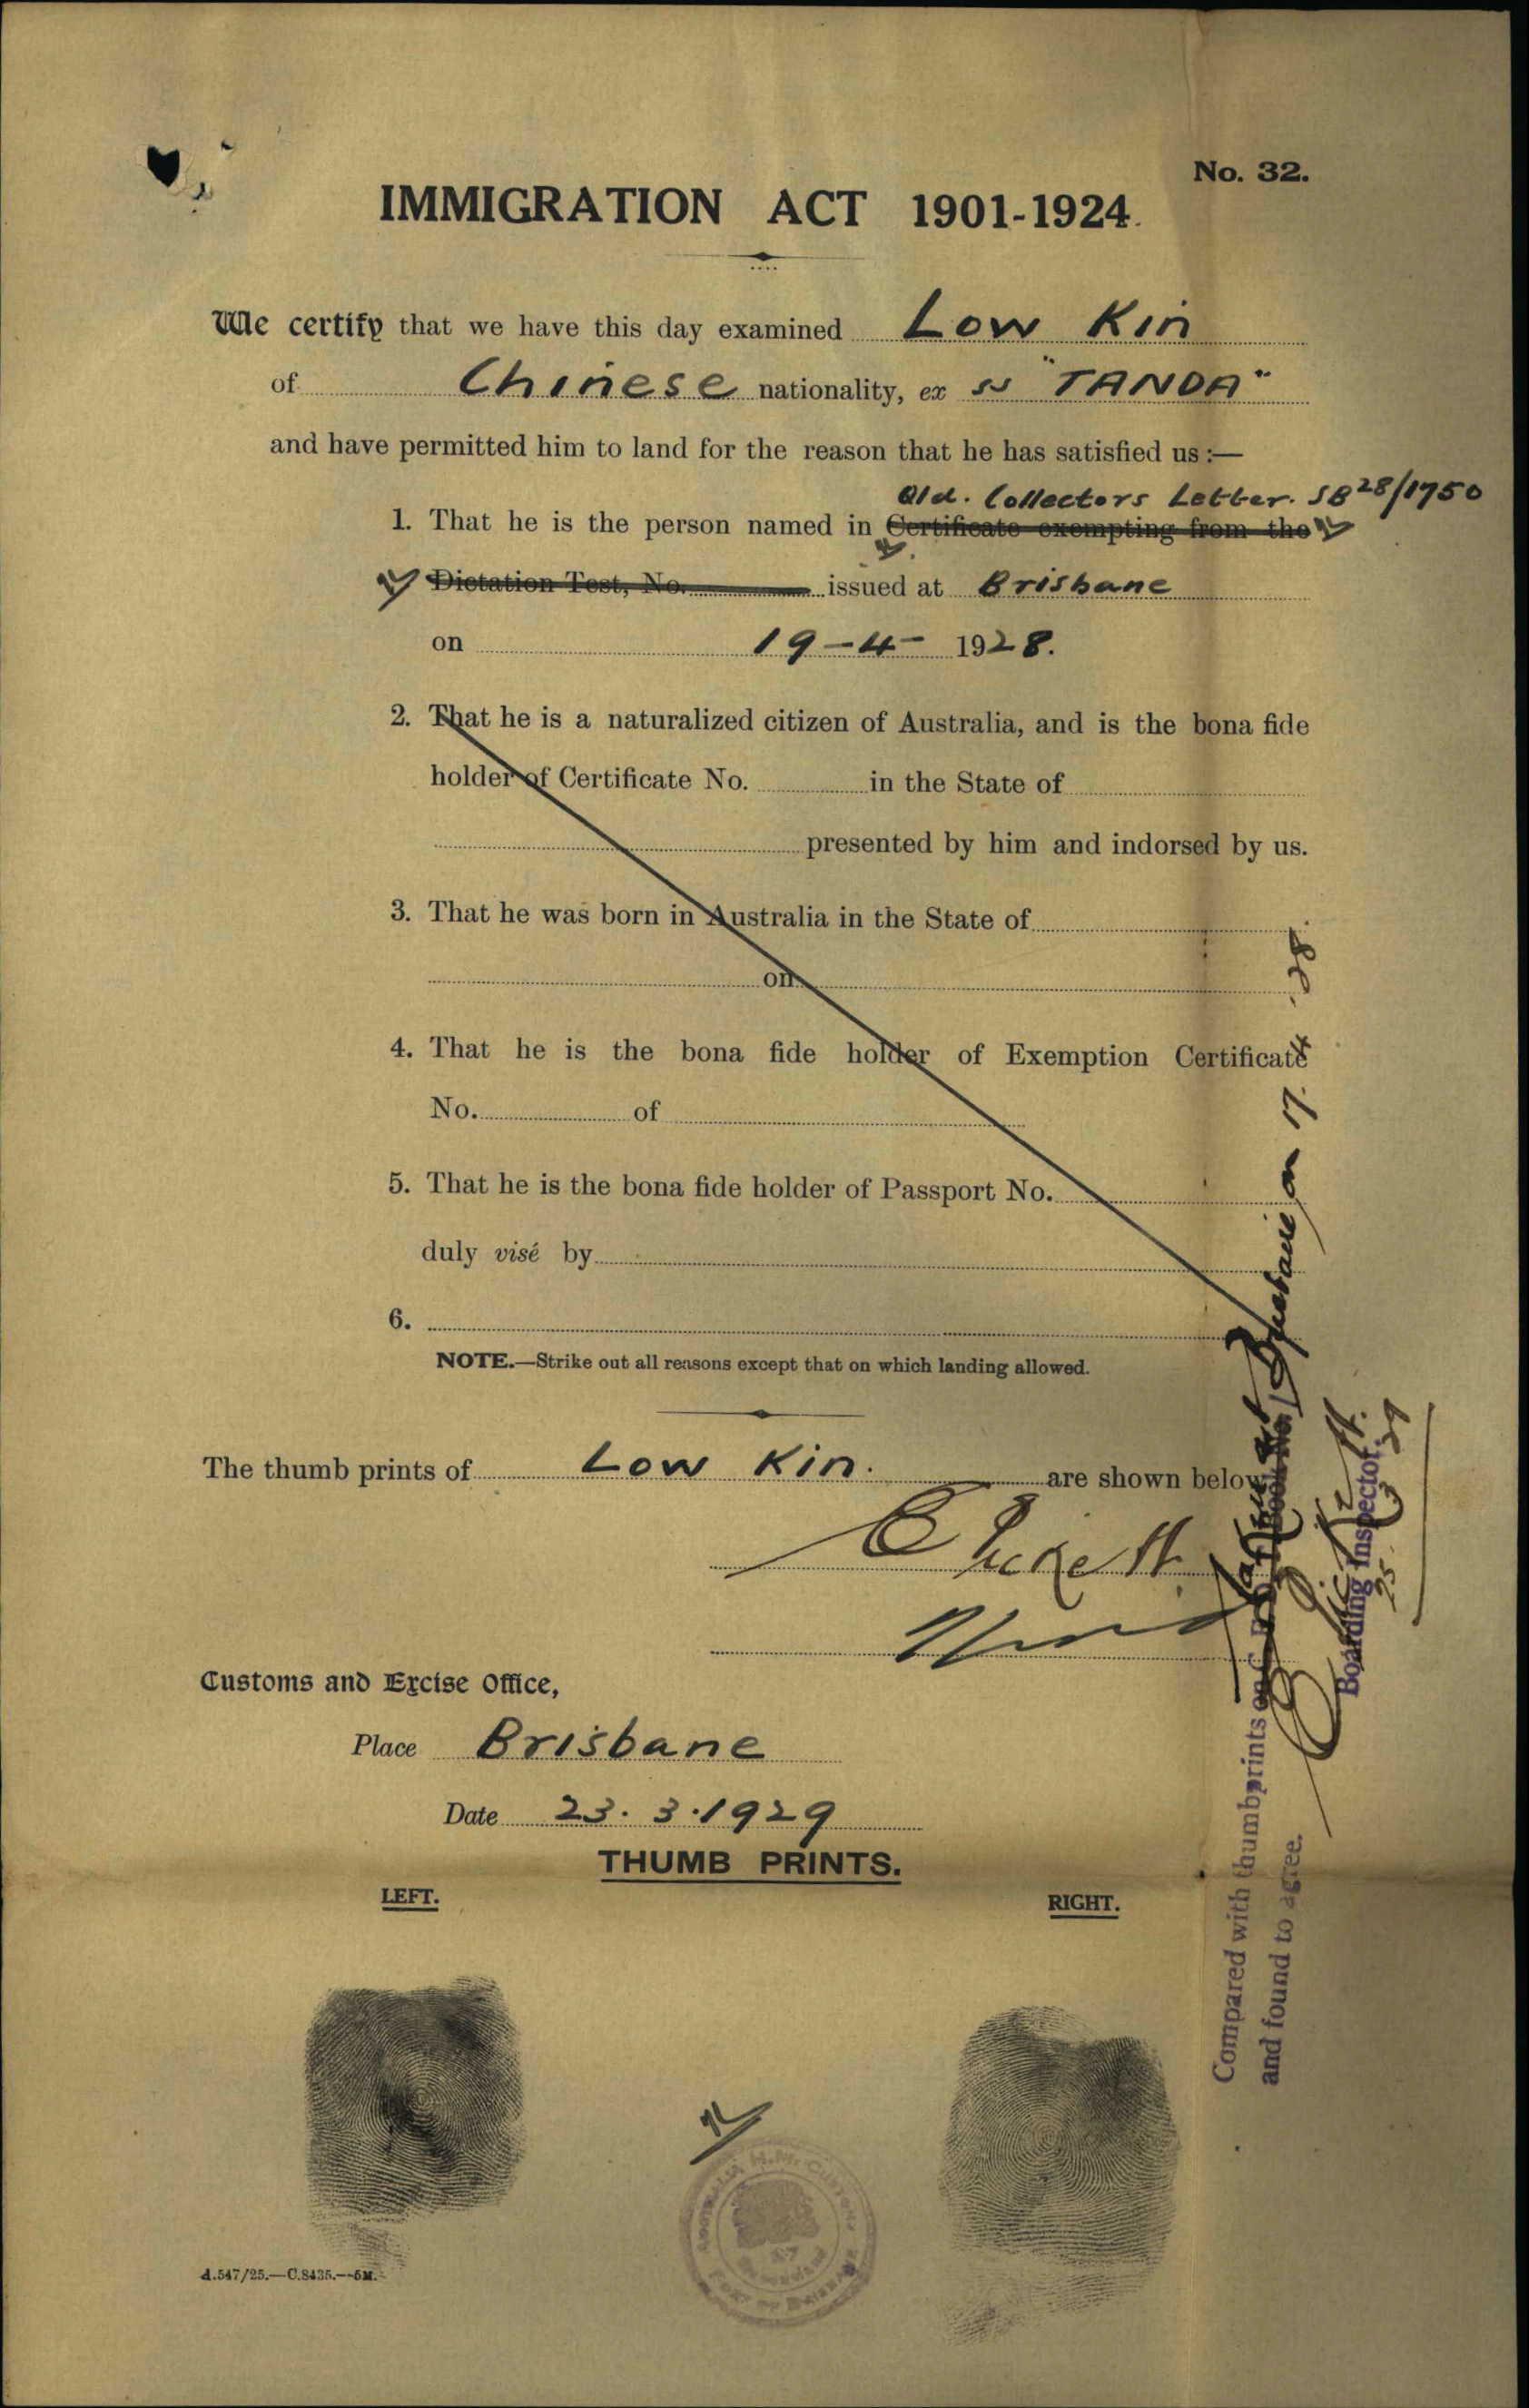 No. 32.
IMMIGRATION ACT 1901-1924.
We certify that we have this day examined Low Kin
of Chinese nationality, ex SS "TANDA"
and have permitted him to land for the reason that he has satisfied us :—
Qld. Collectors Letter. SB 28/1750
1. That he is the person named in Certificate exempting from the
Dictation Test, No. issued at Brisbane
on 19-4- 1928.
2. That he is a naturalized citizen of Australia, and is the bona fide
holder of Certificate No. in the State of
presented by him and indorsed by us.
3. That he was born in Australia in the State of
on
4. That he is the bona fide holder of Exemption Certificate
No. of
5. That he is the bona fide holder of Passport No.
duly visé by
6.
NOTE.—Strike out all reasons except that on which landing allowed.
The thumb prints of Low Kin. are shown below
Customs and Excise Office,
Place Brisbane
Date 23. 3. 1929
THUMB PRINTS.
LEFT.
RIGHT.
A.547/25.—C.8435.—5M.
Compared with thumbprints on
Brisbane on 17. 4 .28.
and found to agree.
Boarding Inspector.
25. 3 29